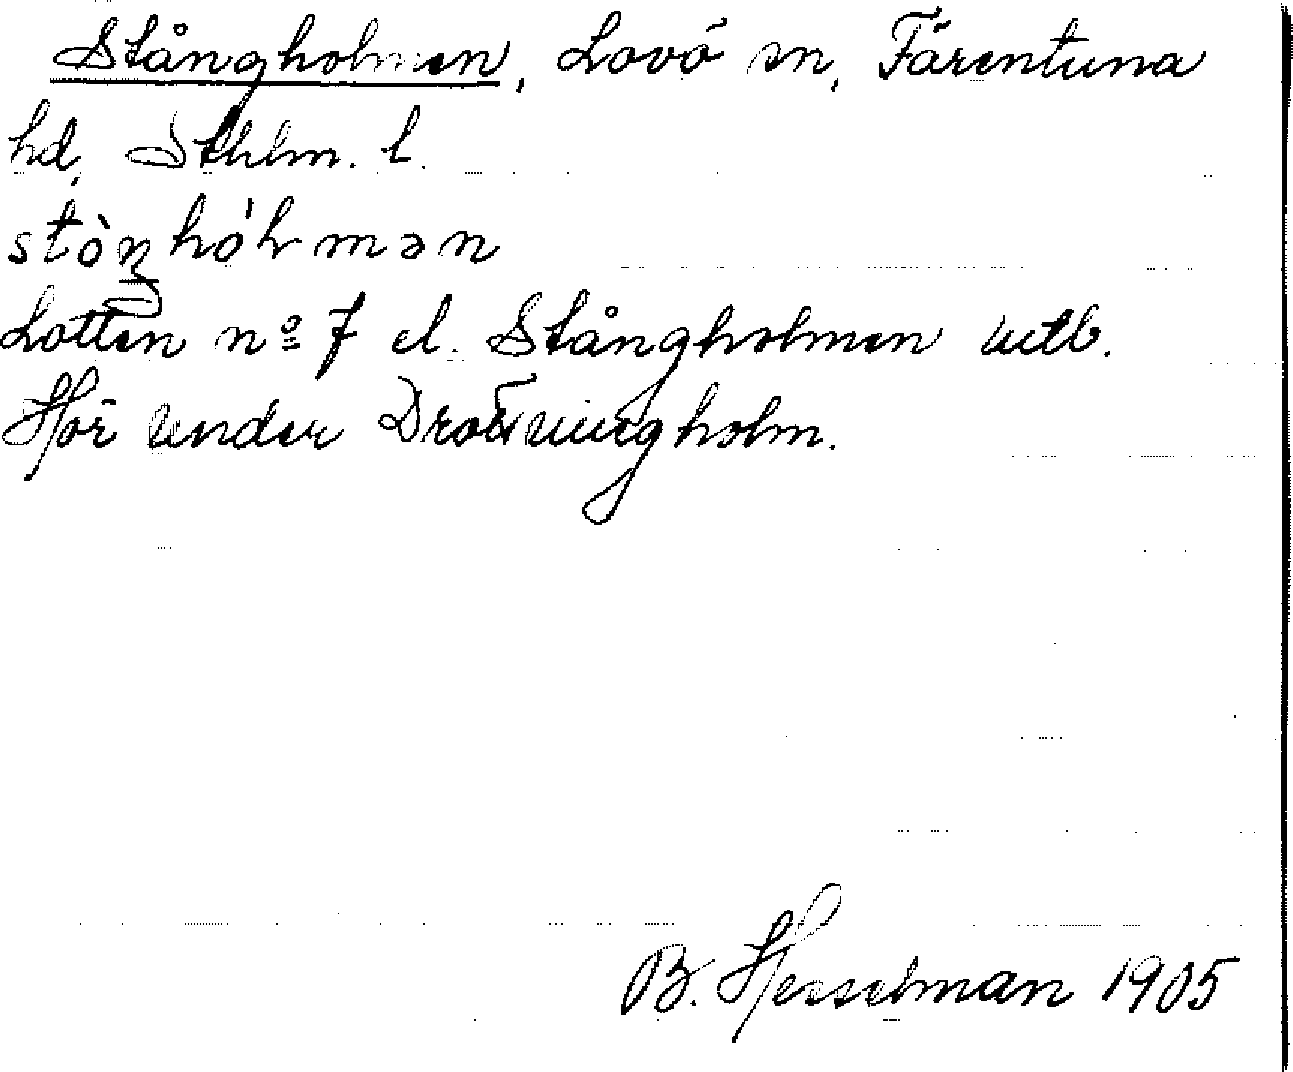 Stångholmen, Lovö sn, Färentuna
hd, Sthlm. l.
Lotten nº 7 el. Stångholmen utb.
Hör under Drottningholm.
B. Hesselman 1905